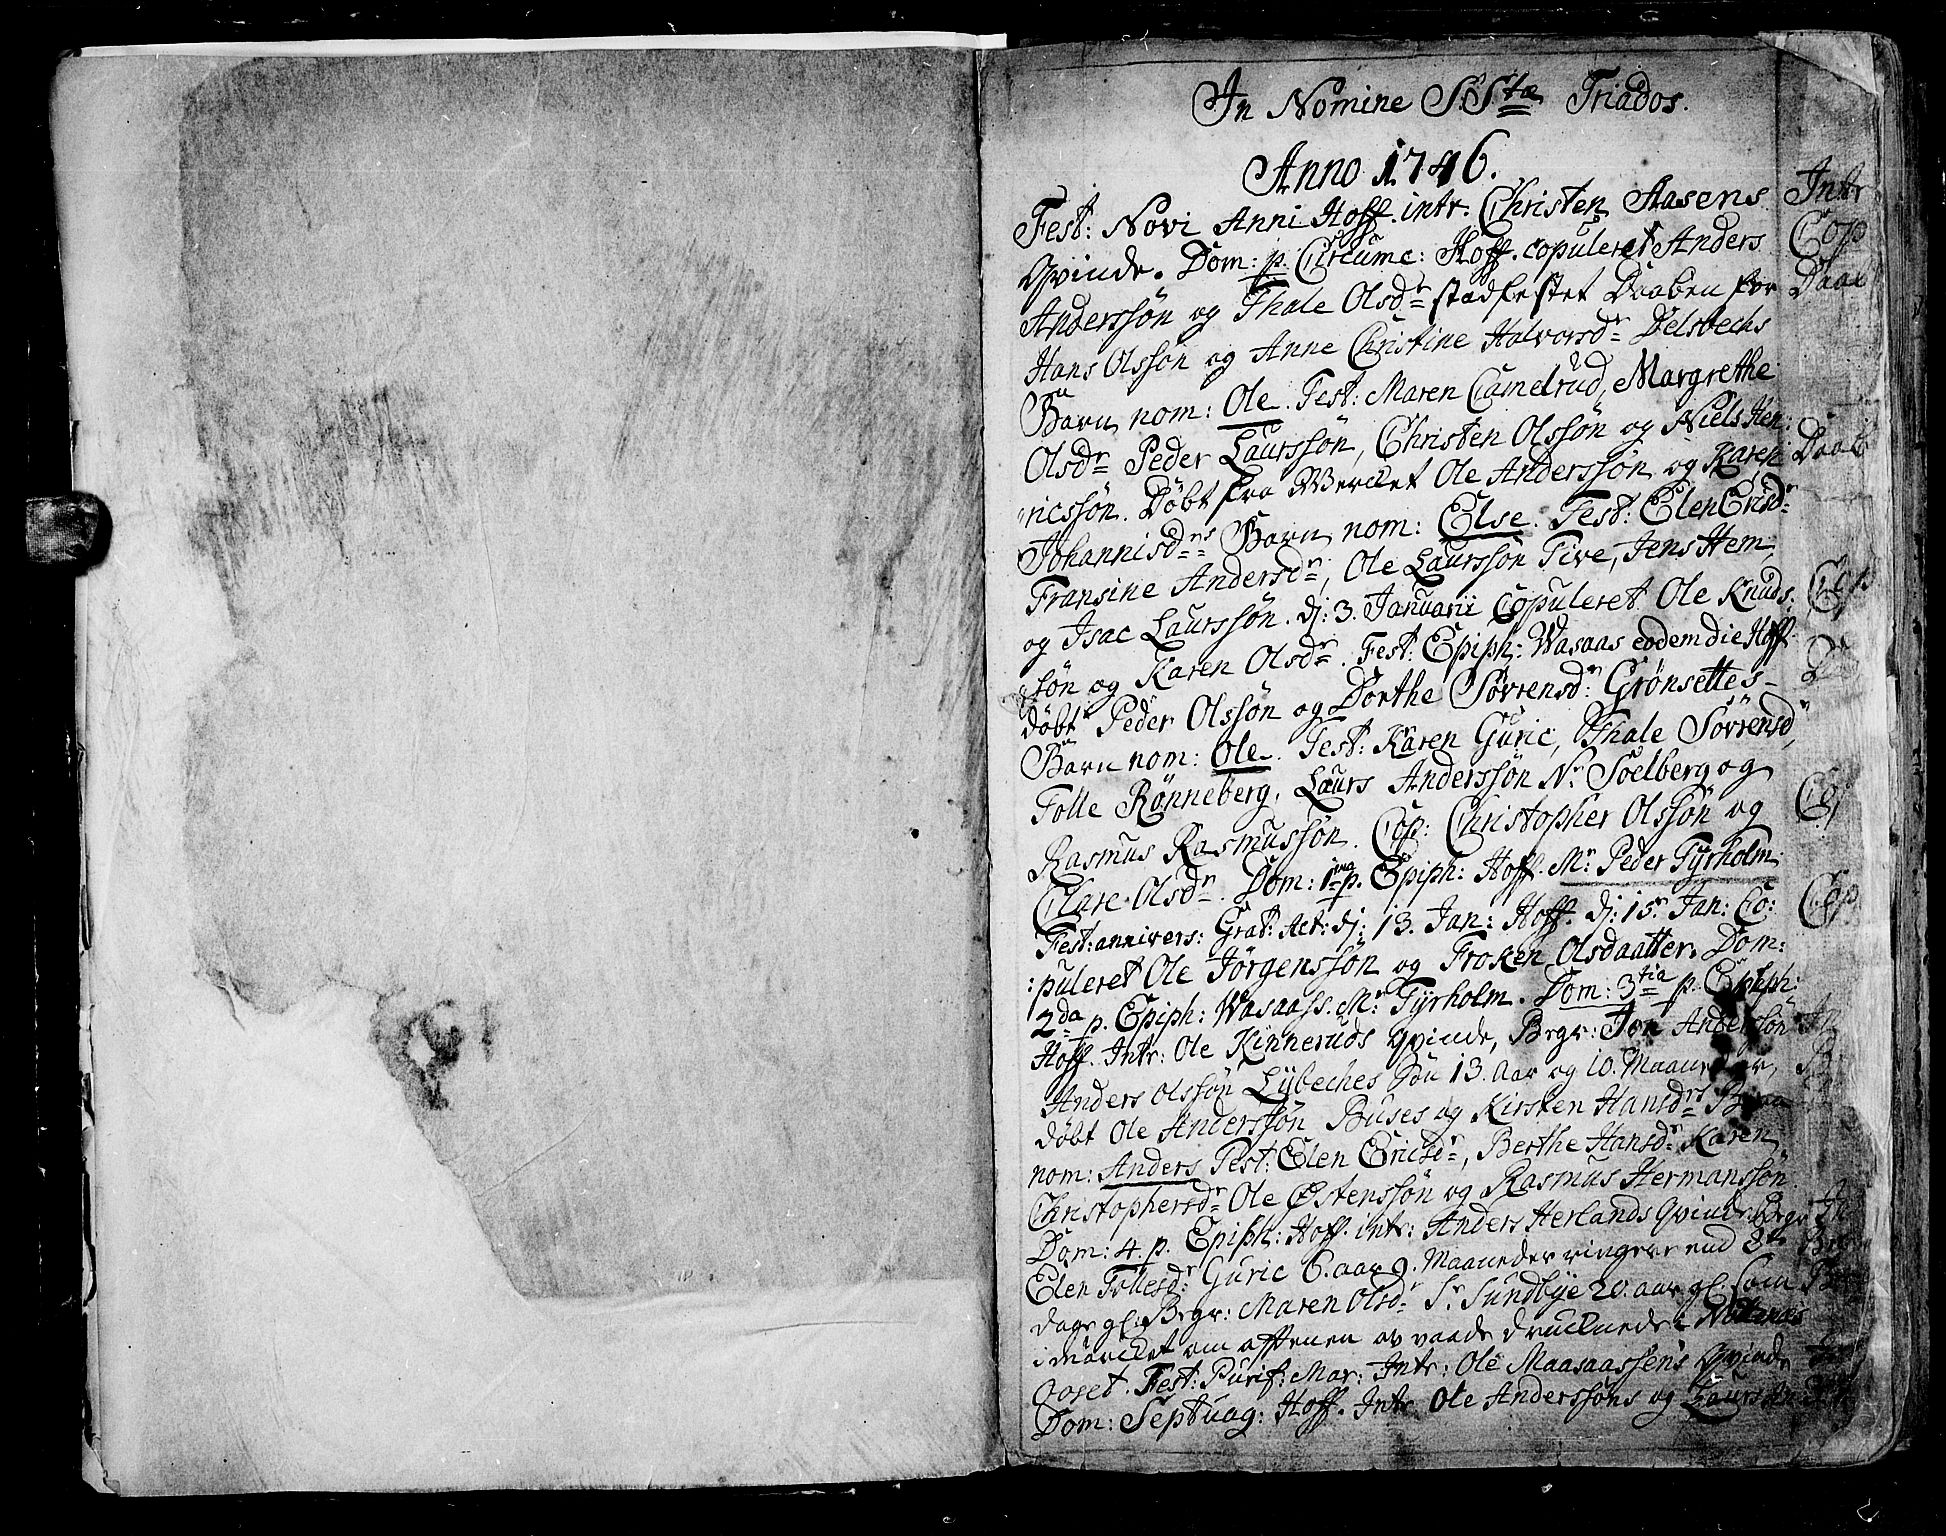 In Nomine S.S.tæ Triados.
Anno 1746.
Fest: Novi Anni Hoff. intr. Christen Aasens Intr
Qvinde. Dom: p. Circumc: Hoff. copuleret Anders Cop
Anderssøn og Thale Olsdr stadfestet Daaben for Daab
Hans Olssøn og Anne Christine Halvorsdr Delsbechs
Barn nom: Ole. Test: Maren Camelrud, Margrethe
Olsdr Peder Laurssøn, Christen Olssøn og Niels Hen:
ricssøn. Døbt fra Wercket Ole Anderssøn og Karen Daab
Johannisdrs Barn nom: Else. Test: Elen Ericsdr
Fransine Andersdr, Ole Laurssøn Tive, Jens Hem,
og Isac Laurssøn. dj: 3. Januarii Copuleret Ole Knuds: Cop
søn og Karen Olsdr. Fest: Epiph: Wasaas eodem die Hoff.
døbt Peder Olssøn og Dorthe Sørrensdr Grønsettes
Barn nom: Ole. Test: Karen Guric, Thale Sørrensdr,
Tolle Rønneberg, Laurs Anderssøn Nr Soelberg og
Rasmus Rasmussøn. Cop: Christopher Olssøn og Cop
Clare Olsdr. Dom: 1ma p. Epiph: Hoff. Mr Peder Tyrholm
Fest: annivers: Grat: Act: dj: 13. Jan: Hoff. dj: 15. Jan: Co: Cop
:puleret Ole Jørgenssøn og Froken Olsdaatter. Dom:
2da p. Epiph: Wasaas. Mr Tyrholm. Dom: 3tia p. Epiph:
Hoff. Intr: Ole Kinneruds Qvinde, Begr: Jon Anderssøn In
Anders Olssøn Lybeches Søn 13. Aar og 10. Maaneder, B
døbt Ole Anderssøn Buses og Kirsten Hansdrs Barn
nom: Anders Test: Elen Ericsdr, Berthe Hansdr Karen
Christophersdr Ole Østenssøn og Rasmus Hermanssøn.
Dom: 4. p. Epiph: Hoff. intr: Anders Herlands Qvinde. Begr. In
Elen Tollesdr Guric 6. aar 9. Maaneder ringere end 8te Begr
dage gl. Begr: Maren Olsdr Sr Sundbye 20. aar gl. som B
i mørcket om afftenen av vaade druknede i
Fest: Purif: Mar: Intr: Ole Maasaassens Qvinde Intr
Dom: Septuag: Hoff. Intr Ole Anderssøns og Laurs